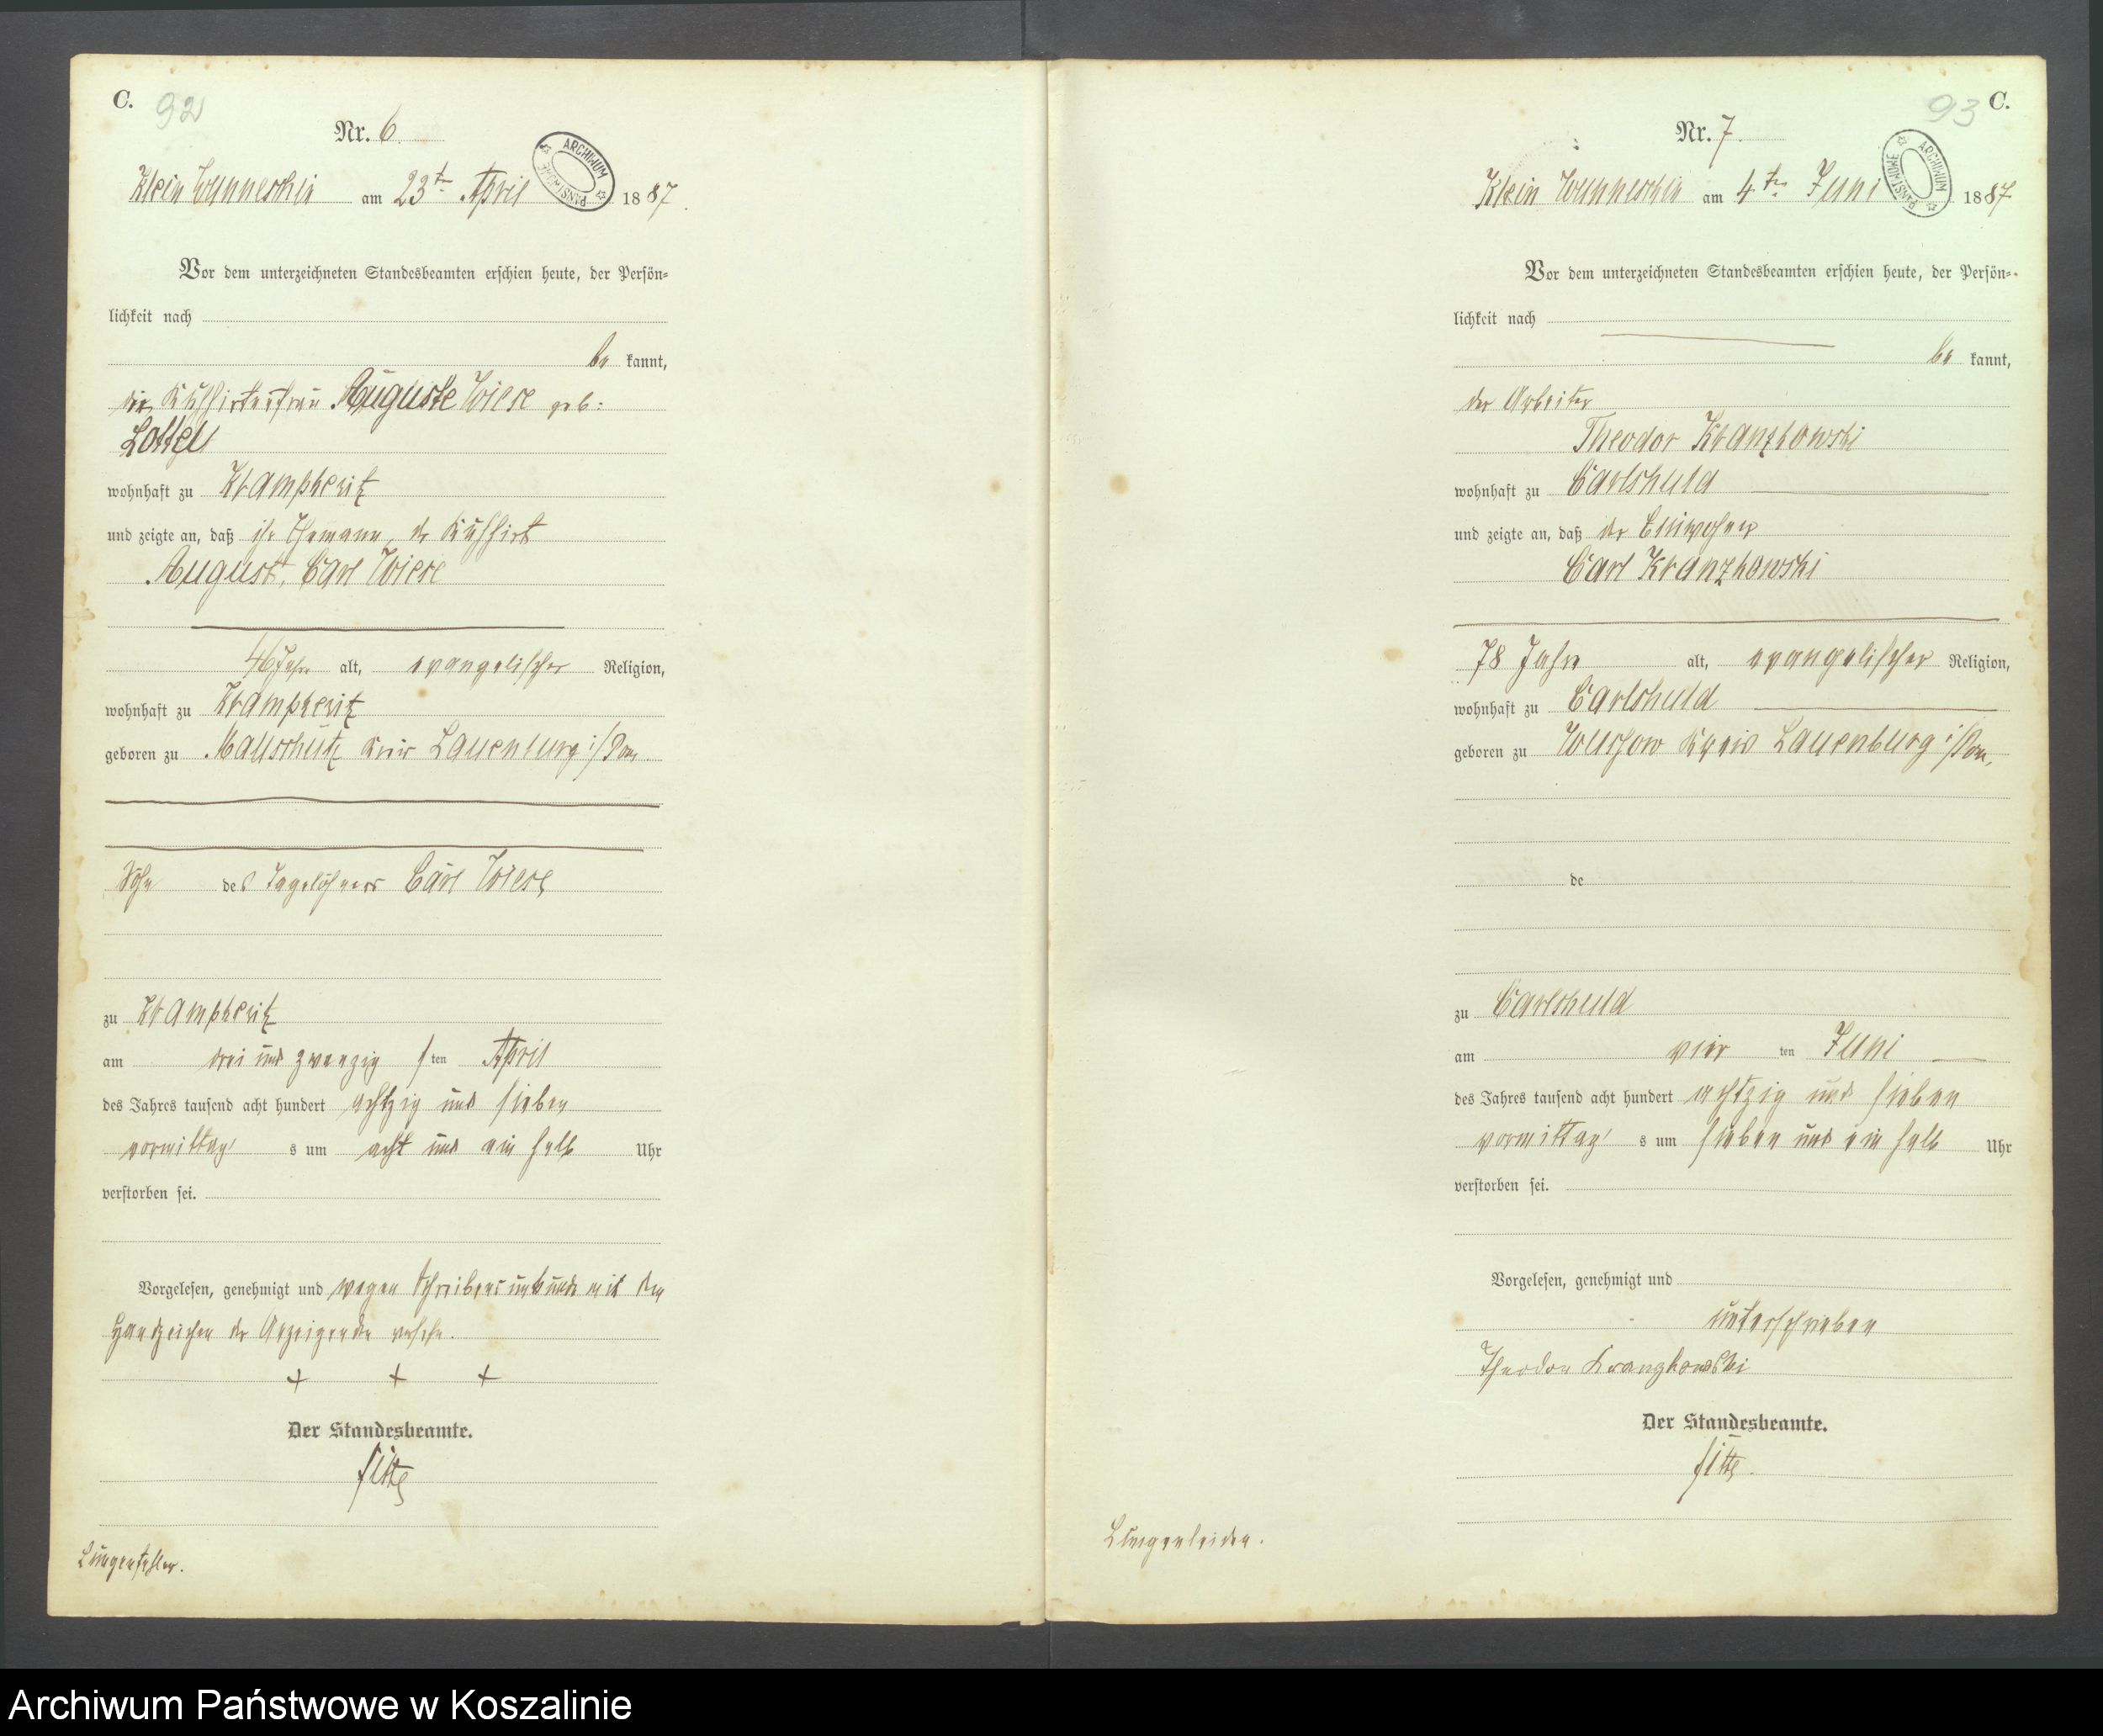 C.
92
Nr. 6
Klein Wunneschin am 23ten April 1887
ARCHIWUM PAŃSTWOWE
Vor dem unterzeichneten Standesbeamten erschien heute, der Persön=
lichkeit nach
be kannt,
die Kuhhirtenfrau Auguste Wiese geb:
wohnhaft zu Krampkewitz
und zeigte an, daß ihr Ehemann, der Kuhhirt
August, Carl Wiese
46 Jahre alt, evangelischer Religion,
wohnhaft zu Krampkewitz
geboren zu Mallschütz Kreis Lauenburg i/Pom
Sohn des Tagelöhners Carl Wiese
zu Krampkewitz
am drei und zwanzig sten April
des Jahres tausend acht hundert achtzig und sieben
vormittag s um acht und ein halb Uhr
verstorben sei.
Vorgelesen, genehmigt und wegen Schreibensunkunde mit dem
Handzeichen der Anzeigenden versehen.
+ + +
Der Standesbeamte.
Lungenfehler.
93
C.
Nr. 7.
Klein Wunneschin am 4ten Juni 1887
ARCHIWUM PAŃSTWOWE
Vor dem unterzeichneten Standesbeamten erschien heute, der Persön=
lichkeit nach
be kannt,
der Arbeiter
Theodor Kranzkowski
wohnhaft zu Carlshuld
und zeigte an, daß der Einwohner
Carl Kranzkowski
78 Jahre alt, evangelischer Religion,
wohnhaft zu Carlshuld
geboren zu Wussow Kreis Lauenburg i/Pom.
de
zu Carlshuld
am vier ten Juni
des Jahres tausend acht hundert achtzig und sieben
vormittag s um sieben und ein halb Uhr
verstorben sei.
Vorgelesen, genehmigt und
unterschrieben
Theodor Kranzkowski
Der Standesbeamte.
Lungenleiden.
Archiwum Państwowe w Koszalinie